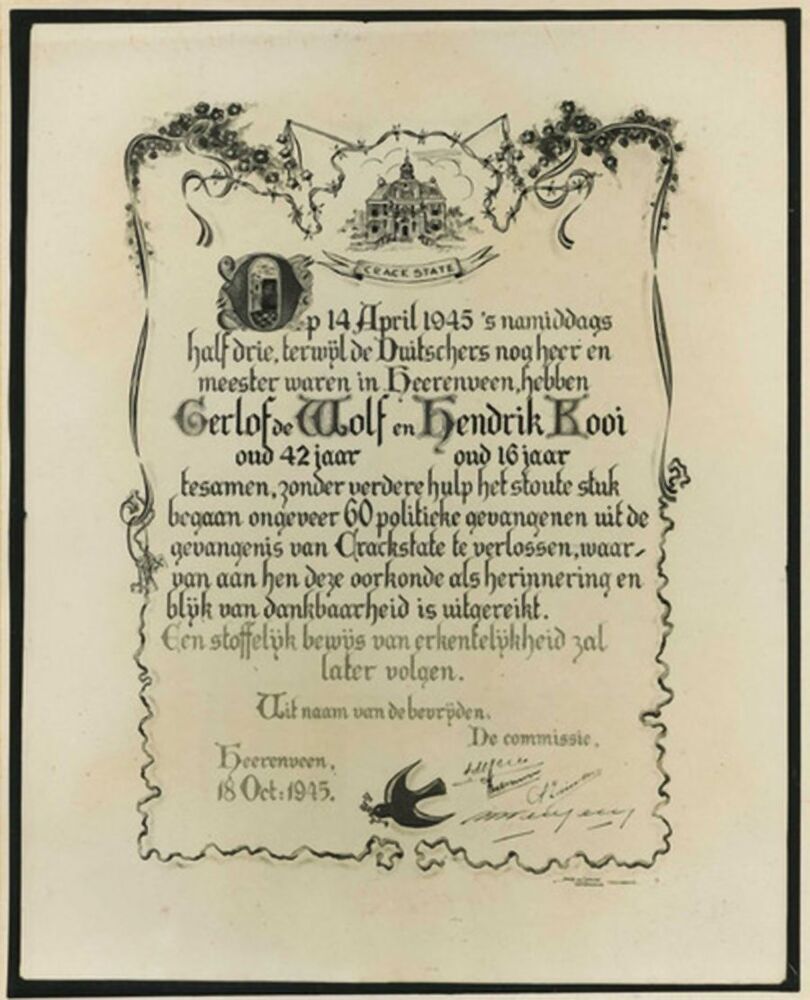 CRACK STATE
Op 14 April 1945 's namiddags
half drie, terwijl de Duitschers nog heer en
meester waren in Heerenveen, hebben
Gerlof de Wolf en Hendrik Kooi
oud 42 jaar oud 16 jaar
tesamen, zonder verdere hulp het stoute stuk
begaan ongeveer 60 politieke gevangenen uit de
gevangenis van Crackstate te verlossen, waar-
van aan hen deze oorkonde als herinnering en
blijk van dankbaarheid is uitgereikt.
Een stoffelijk bewijs van erkentelijkheid zal
later volgen.
Uit naam van de bevrijden.
De commissie.
Heerenveen,
18 Oct: 1945.